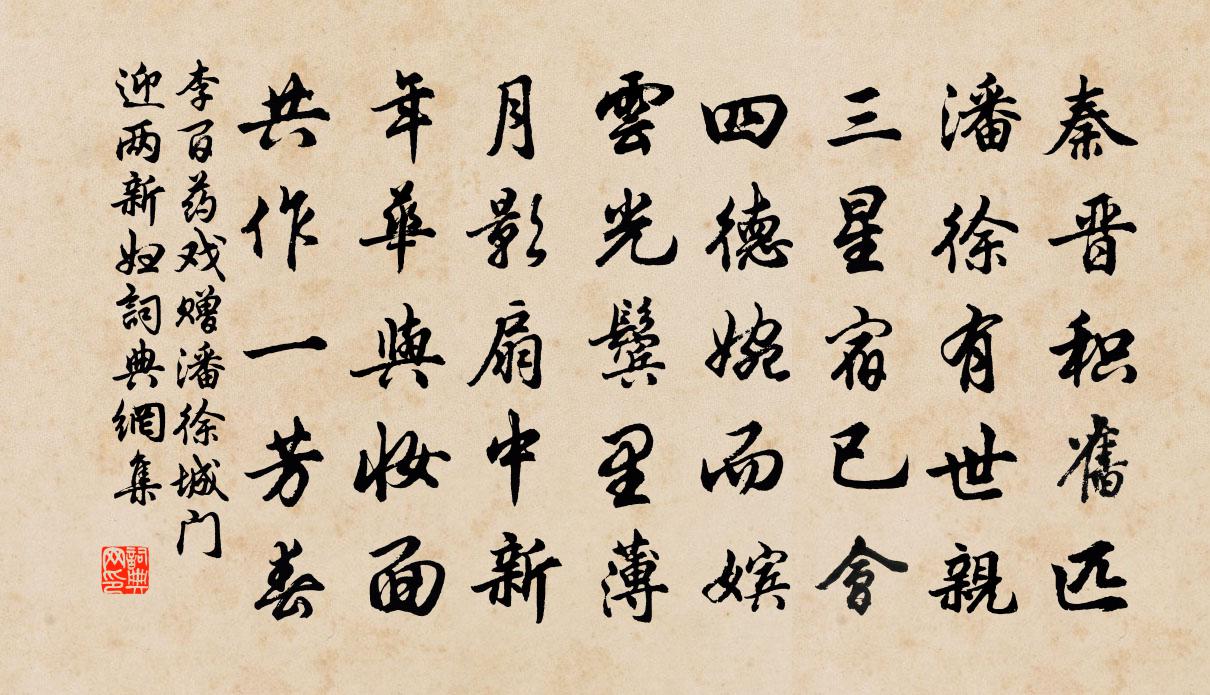 秦晋积舊匹
潘徐有世親
三星宿已會
四德婉而嫔
雲光鬓里薄
月影扇中新
年華與妆面
共作一芳春
李百药戏赠潘徐城门
迎两新妇詞典網集
詞典
网印